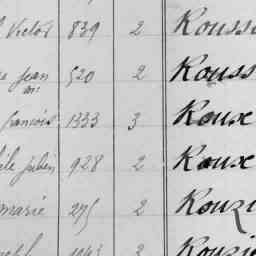 Victor 839 2 Rouss
Jean 520 2 Rouss
françois 1333 3 Roux
Julien 928 2 Roux
marie 275 2 Rouz
1043 2 Rouzi